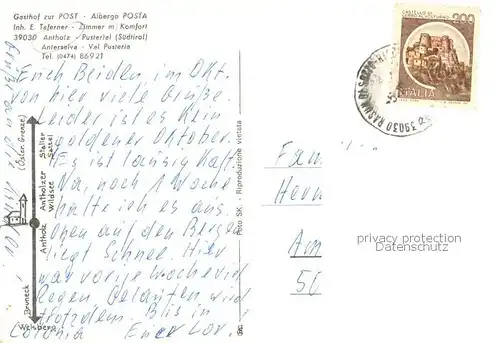 Gasthof zur POST - Albergo POSTA
Inh. E. Taferner - Zimmer m. Komfort
39030 Antholz - Pustertal (Südtirol)
Anterselva - Val Pusteria
Tel. (0474) 86921
Euch Beiden im Okt.
von hier viele Grüße.
Leider ist es kein
goldener Oktober.
Es ist lausig kalt.
Na, noch 1 Woche
halte ich es aus.
Oben auf den Bergen
liegt Schnee. Hier
war vorige Woche viel
Regen. Gelaufen wird
trotzdem. Bis in
Colonia Euer
(Österr. Grenze)
Staller Sattel
Antholzer Wildsee
Antholz
Bruneck
Welsberg
Foto SK. - Riproduzione vietata
CASTELLO DI
200
ITALIA
39030 RASUN DI
Fam
Herr
Am
50
privacy protection
Datenschutz